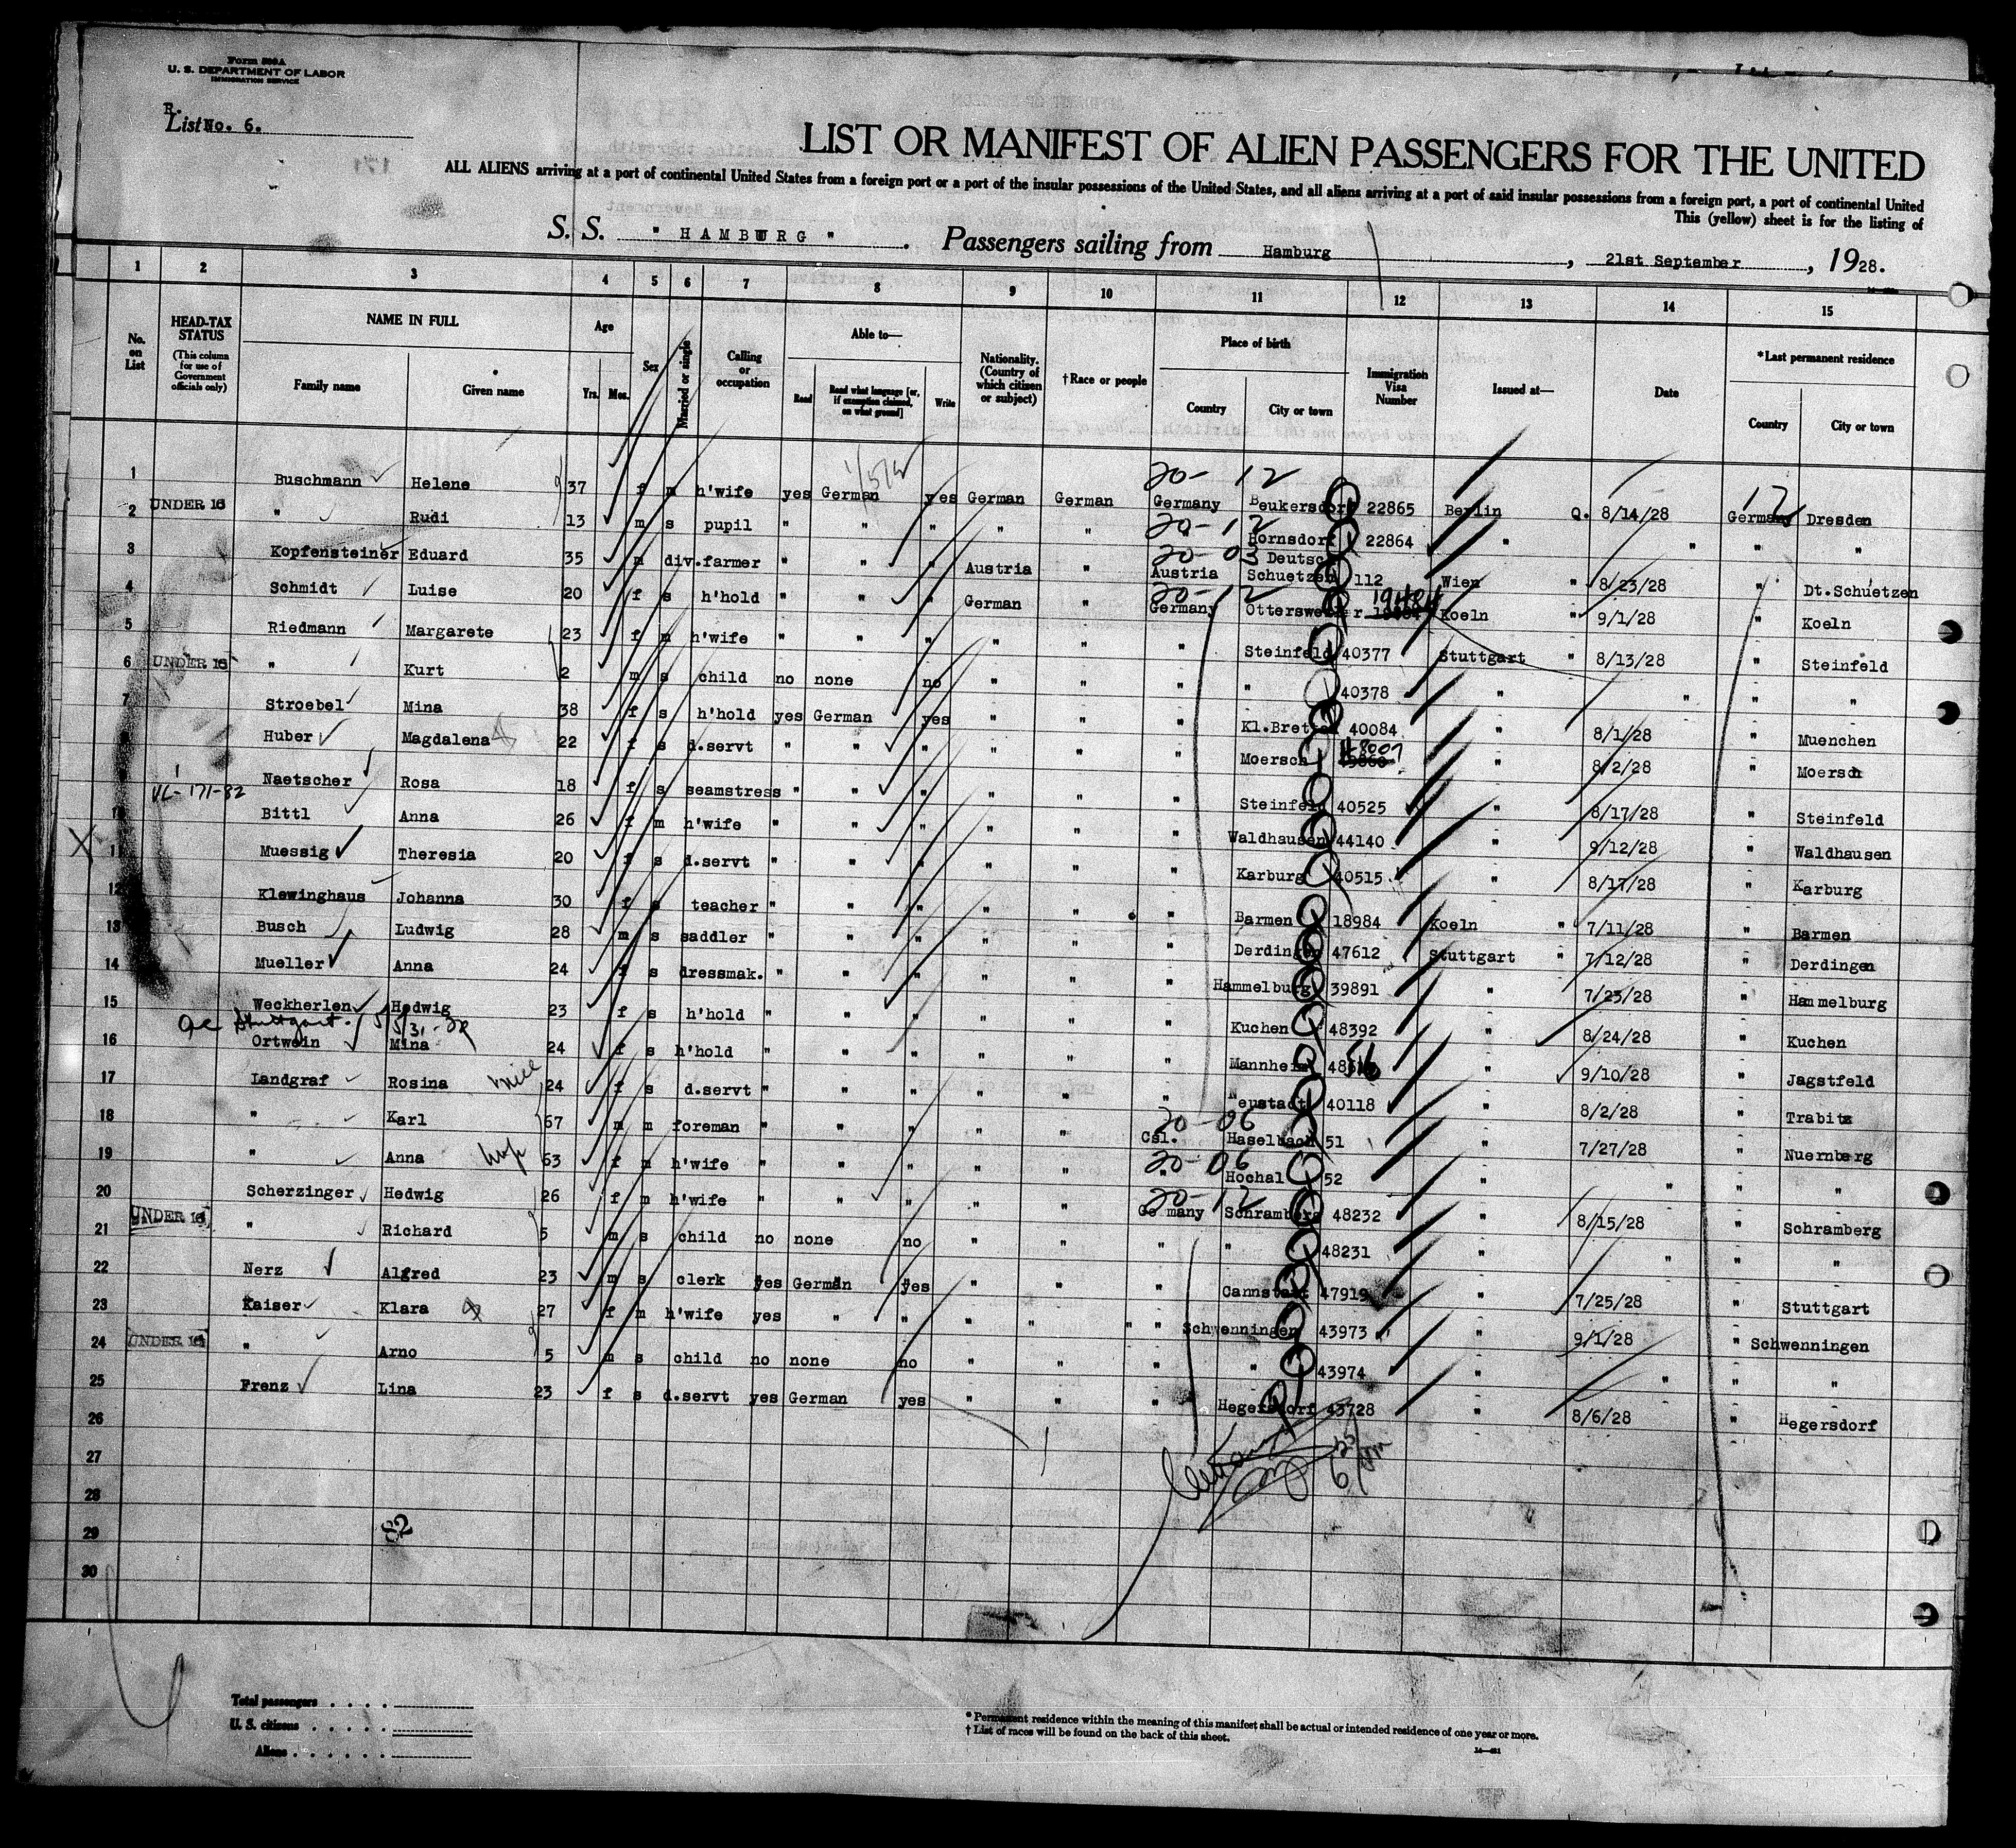 Form 500A
U. S. DEPARTMENT OF LABOR
IMMIGRATION SERVICE
R.
List No. 6.
LIST OR MANIFEST OF ALIEN PASSENGERS FOR THE UNITED
ALL ALIENS arriving at a port of continental United States from a foreign port or a port of the insular possessions of the United States, and all aliens arriving at a port of said insular possessions from a foreign port, a port of continental United
This (yellow) sheet is for the listing of
S. S. " HAMBURG " . Passengers sailing from Hamburg , 21st September , 1928.
1 2 3 4 5 6 7 8 9 10 11 12 13 14 15
No. on List
HEAD-TAX STATUS (This column for use of Government officials only)
NAME IN FULL Family name Given name
Age Yrs. Mos.
Sex
Married or single
Calling or occupation
Able to— Read Read what language [or, if exemption claimed, on what ground] Write
Nationality. (Country of which citizen or subject)
†Race or people
Place of birth Country City or town
Immigration Visa Number
Issued at—
Date
*Last permanent residence Country City or town
20-12 12
1 Buschmann Helene 37 f m h'wife yes German yes German German Germany Beukersdorf 22865 Berlin Q. 8/14/28 Germany Dresden
UNDER 16
20-12
2 " Rudi 13 m s pupil " " " " " Hornsdorf 22864 " " " "
20-03
3 Kopfensteiner Eduard 35 m div. farmer " " " Austria " Austria Deutsch Schuetzen 112 Wien " 8/23/28 " Dt.Schuetzen
20-12
4 Schmidt Luise 20 f s h'hold " " " German " Germany Ottersweier Koeln " 9/1/28 " Koeln
5 Riedmann Margarete 23 f m h'wife " " " " " " Steinfeld 40377 Stuttgart " 8/13/28 " Steinfeld
6 UNDER 16 " Kurt 2 m s child no none no " " " " 40378 " " " "
7 Stroebel Mina 38 f s h'hold yes German yes " " " 40084 " 8/1/28 " Muenchen
Huber Magdalena 22 f s d.servt " " " " " " Moersch " 8/2/28 " Moersch
Naetscher Rosa 18 f s seamstress " " " " " " Steinfeld 40525 " 8/17/28 " Steinfeld
VL-171-82
10 Bittl Anna 26 f m h'wife " " " " " " Waldhausen 44140 " 9/12/28 " Waldhausen
X 11 Muessig Theresia 20 f s d.servt " " " " " " Karburg 40515 " 8/17/28 " Karburg
12 Klewinghaus Johanna 30 f s teacher " " " " " " Barmen 18984 Koeln " 7/11/28 " Barmen
13 Busch Ludwig 28 m s saddler " " " " " " Derdingen 47612 Stuttgart " 7/12/28 " Derdingen
14 Mueller Anna 24 f s dressmak. " " " " " " Hammelburg 39891 " 7/23/28 " Hammelburg
15 Weckherlen Hedwig 23 f s h'hold " " " " " " Kuchen 48392 " 8/24/28 " Kuchen
Stuttgart
16 Ortwein Mina 24 f s h'hold " " " " " " Mannheim " 9/10/28 " Jagstfeld
17 Landgraf Rosina 24 f s d.servt " " " " " " Neustadt 40118 " 8/2/28 " Trabitz
20-06
18 " Karl 67 m m foreman " " " " " Csl. Haselbach 51 " 7/27/28 " Nuernberg
20-06
19 " Anna 63 f m h'wife " " " " " " Hochal 52 " " " "
20-12
20 Scherzinger Hedwig 26 f m h'wife " " " " " Germany Schramberg 48232 " 8/15/28 " Schramberg
UNDER 16
21 " Richard 5 m s child no none no " " " " 48231 " " " "
22 Nerz Alfred 23 m s clerk yes German yes " " " Cannstatt 47919 " 7/25/28 " Stuttgart
23 Kaiser Klara 27 f m h'wife yes " " " " " " Schwenningen 43973 " 9/1/28 " Schwenningen
24 UNDER 16 " Arno 5 m s child no none no " " " " 43974 " " " "
25 Frenz Lina 23 f s d.servt yes German yes " " " Hegersdorf 43728 " 8/6/28 " Hegersdorf
26
27
28
29 82
30
Total passengers . . . .
U. S. citizens . . . . .
Aliens . . . . . .
* Permanent residence within the meaning of this manifest shall be actual or intended residence of one year or more.
† List of races will be found on the back of this sheet.